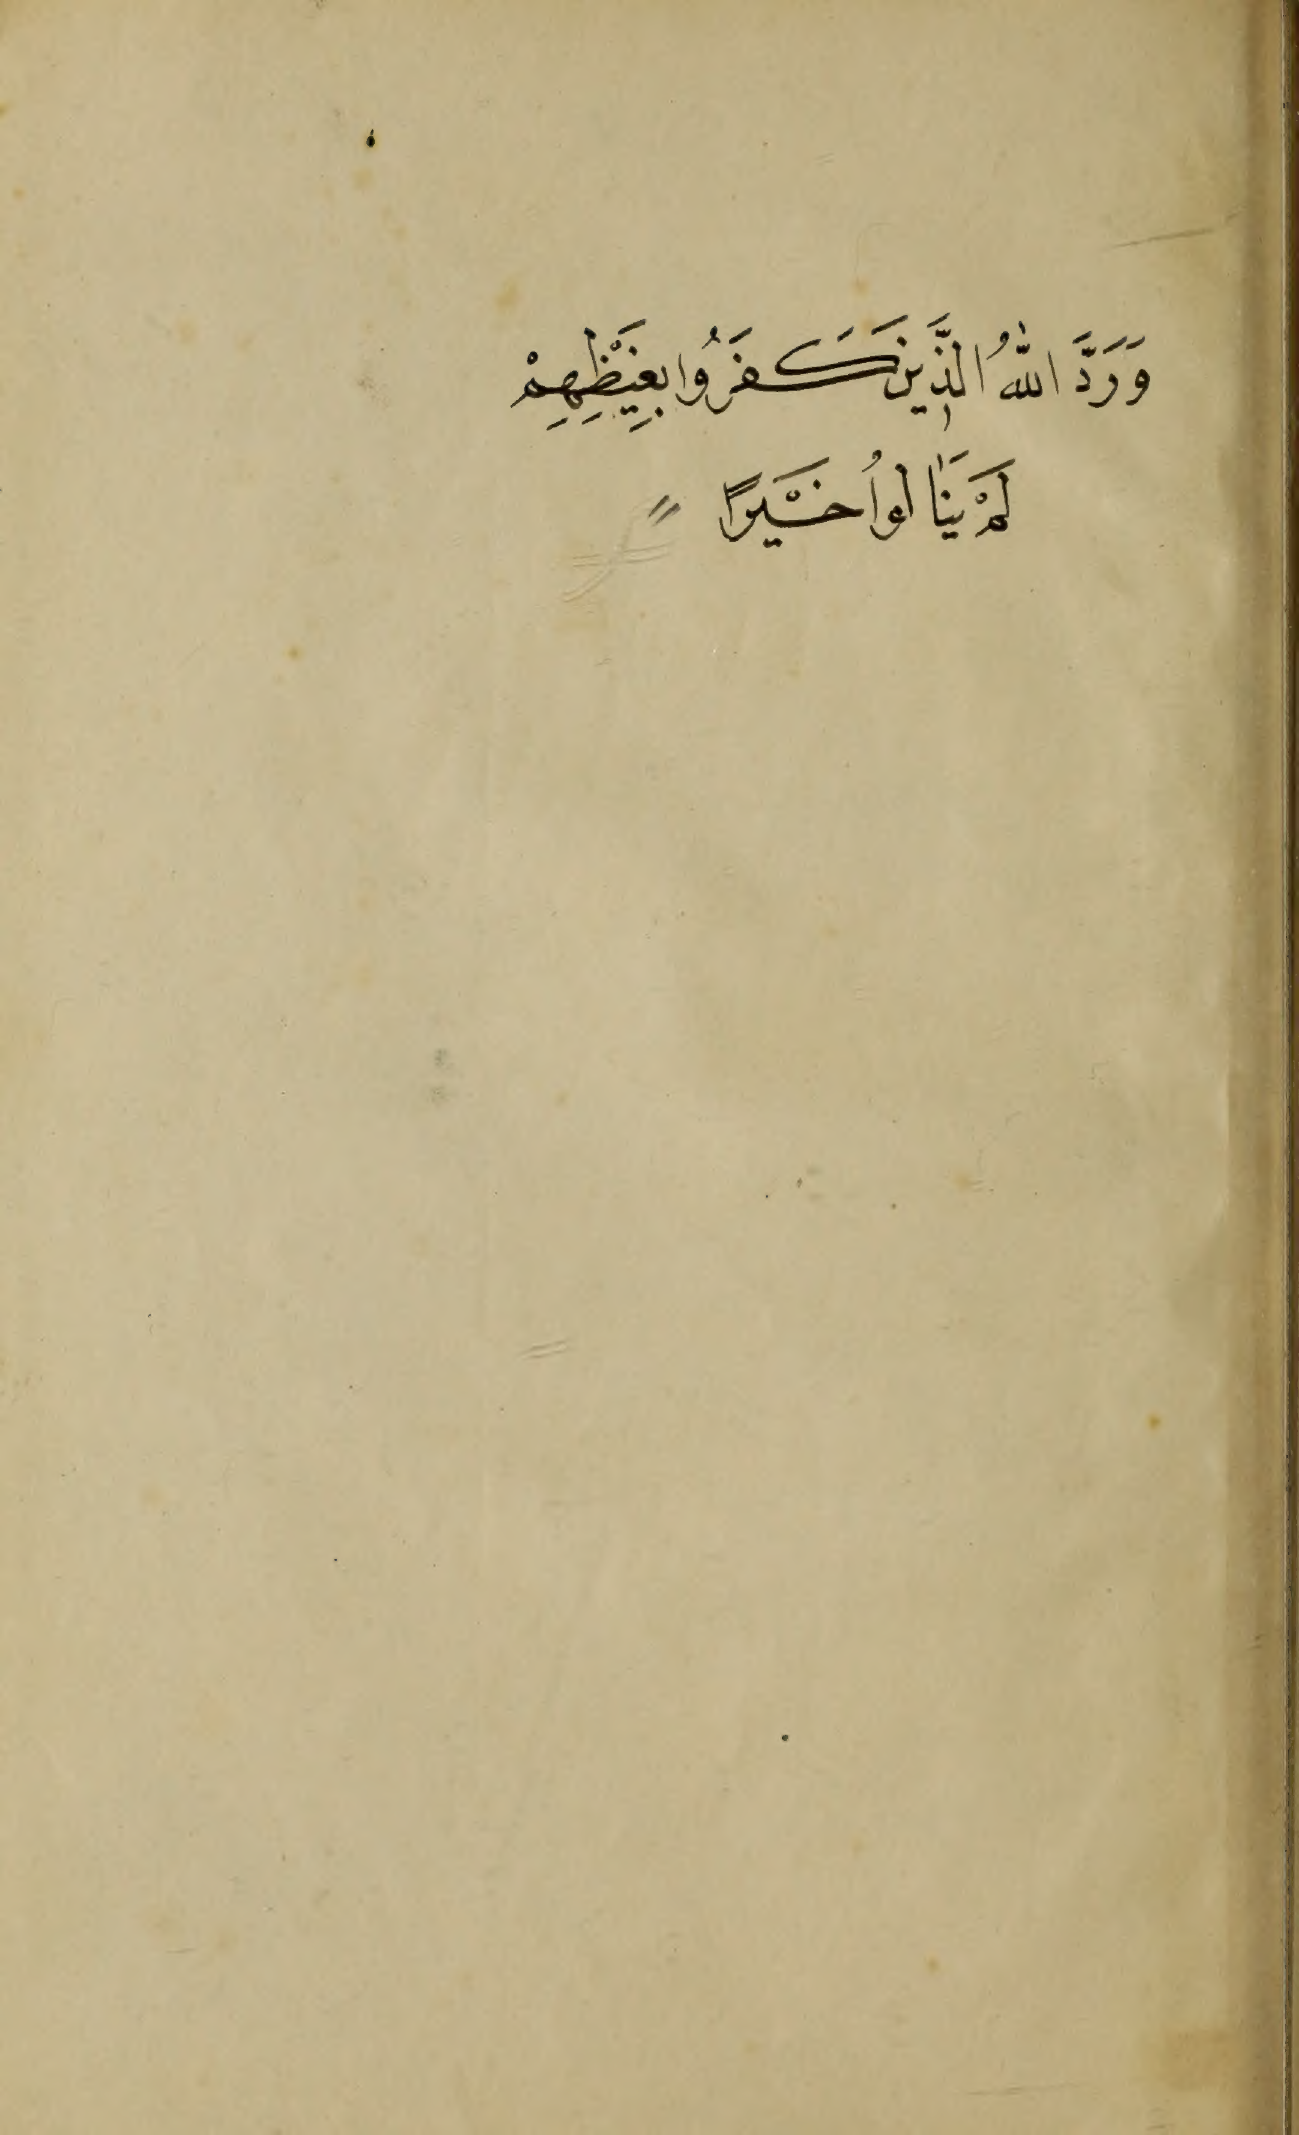 وَرَدَّ اللّٰهُ الَّذِينَ كَفَرُوا بِغَيْظِهِمْ
لَمْ يَنَالُوا خَيْرًا